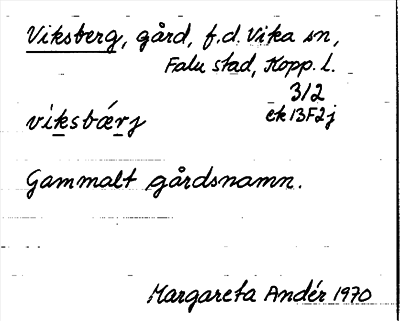 Viksberg, gård, f.d. Vika sn,
Falu stad, Kopp. l.
312
ek13F2j
viksbærj
Gammalt gårdsnamn.
Margareta Andér 1970